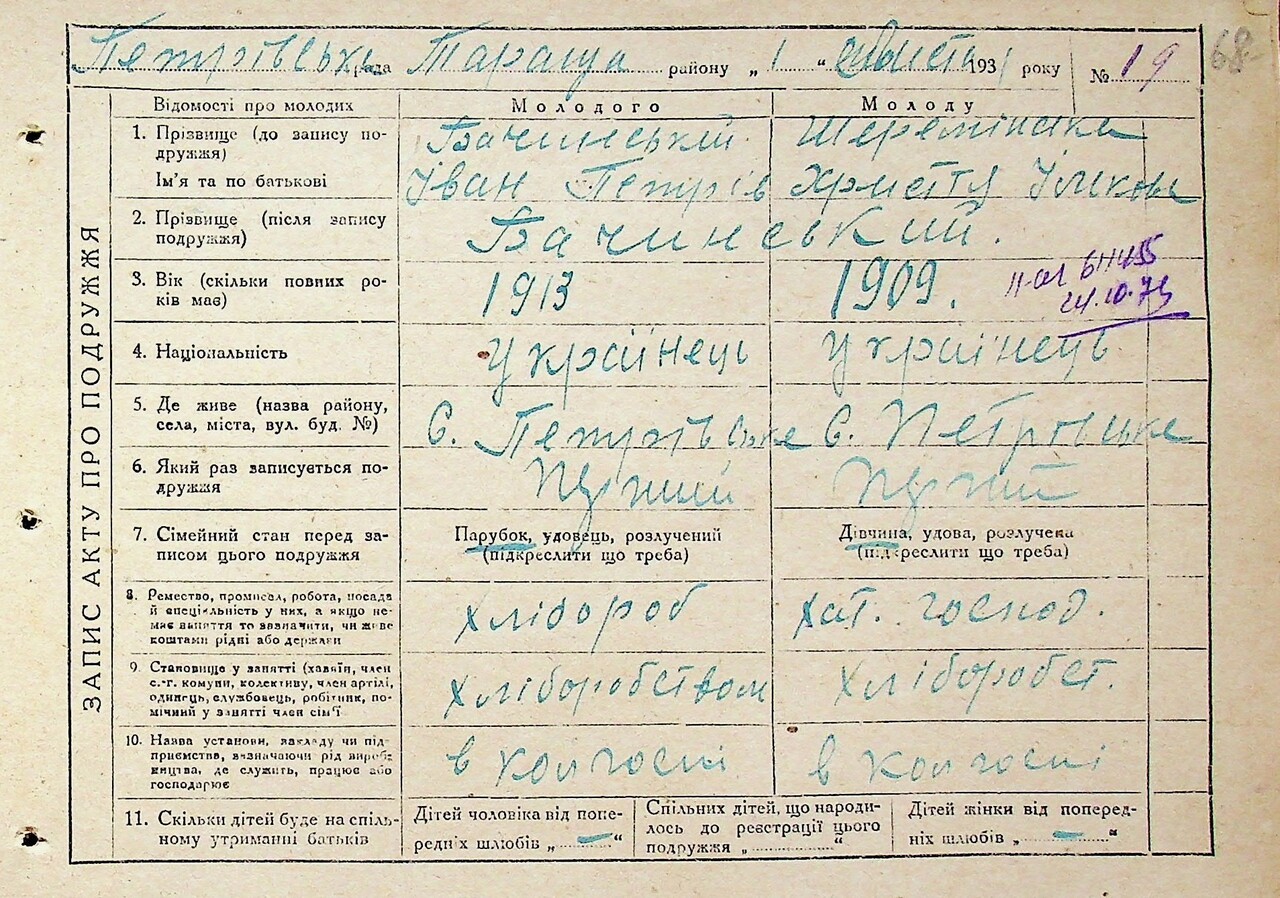 68
Петрівська рада Тараща району „1“ 1931 року № 19
ЗАПИС АКТУ ПРО ПОДРУЖЖЯ
Відомості про молодих
Молодого
Молоду
1. Прізвище (до запису подружжя)
Бачинський
Ім'я та по батькові
Іван Петрів
Христя
2. Прізвище (після запису подружжя)
Бачинський.
3. Вік (скільки повних років має)
1913
1909.
24.10.73
4. Національність
Українець
Українець
5. Де живе (назва району, села, міста, вул. буд. №)
С. Петрівське
С. Петрівське
6. Який раз записується подружжя
Перший
Перший
7. Сімейний стан перед записом цього подружжя
Парубок, удовець, розлучений
(підкреслити що треба)
Дівчина, удова, розлучена
(підкреслити що треба)
8. Ремество, промисел, робота, посада
й спеціяльність у них, а якщо не-
має заняття то зазначити, чи живе
коштами рідні або держави
Хлібороб
хат. господ.
9. Становище у занятті (хазяїн, член
с.-г. комуни, колективу, член артілі,
одинець, службовець, робітник, по-
мічний у занятті член сім'ї
Хліборобством
Хліборобст.
10. Назва установи, закладу чи під-
приємства, визначаючи рід вироб-
ництва, де служить, працює або
господарює
в колгоспі
в колгоспі
11. Скільки дітей буде на спіль-
ному утриманні батьків
Дітей чоловіка від попе-
редніх шлюбів „ — “
Спільних дітей, що народи-
лось до реєстрації цього
подружжя „ “
Дітей жінки від поперед-
ніх шлюбів „ — “